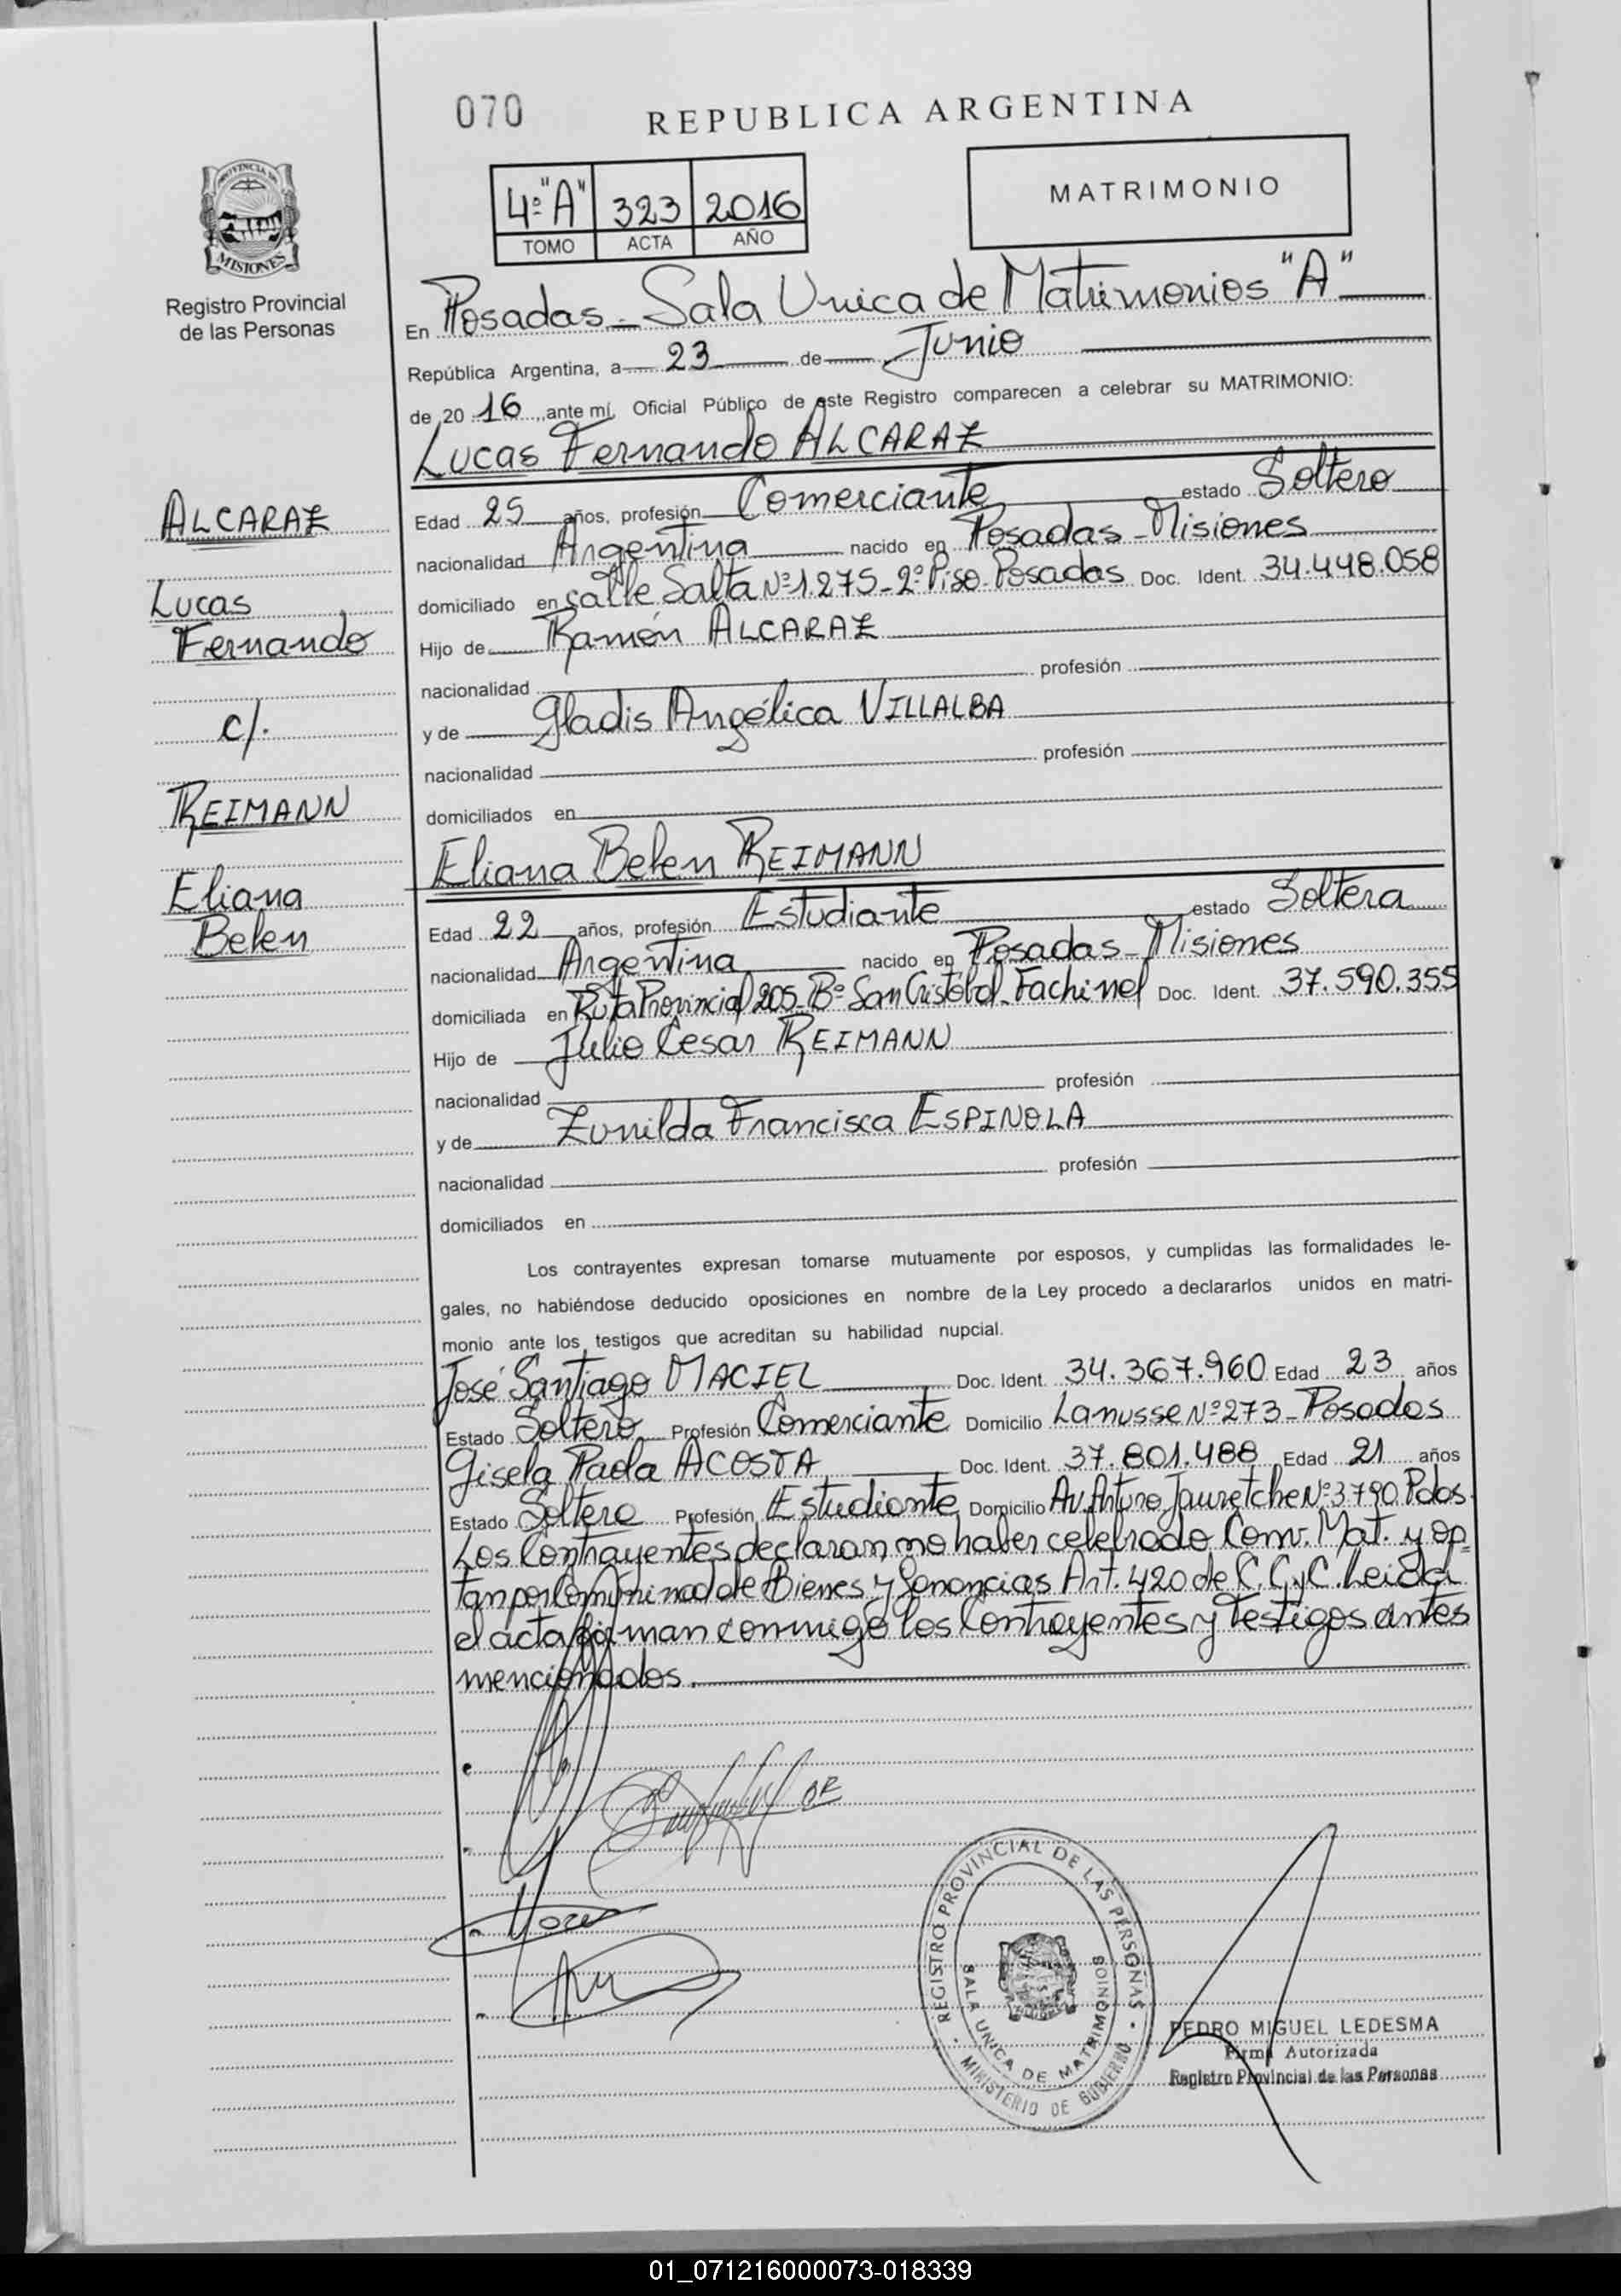 070
REPUBLICA ARGENTINA
4º "A" 323 2016
TOMO ACTA AÑO
MATRIMONIO
PROVINCIA DE
MISIONES
Registro Provincial
de las Personas
En Posadas - Sala Unica de Matrimonios "A"
República Argentina, a 23 de Junio
de 20 16 ante mí, Oficial Público de este Registro comparecen a celebrar su MATRIMONIO:
Lucas Fernando ALCARAZ
Edad 25 años, profesión Comerciante estado Soltero
nacionalidad Argentina nacido en Posadas - Misiones
domiciliado en calle Salta Nº 1.275 - 2º Piso - Posadas Doc. Ident. 34.448.058
Hijo de Ramón ALCARAZ
nacionalidad profesión
y de Gladis Angélica VILLALBA
nacionalidad profesión
domiciliados en
ALCARAZ
Lucas
Fernando
c/.
REIMANN
Eliana
Belen
Eliana Belen REIMANN
Edad 22 años, profesión Estudiante estado Soltera
nacionalidad Argentina nacido en Posadas - Misiones
domiciliada en Ruta Provincial 205 - Bº San Cristóbal - Fachinal Doc. Ident. 37.590.355
Hijo de Julio Cesar REIMANN
nacionalidad profesión
y de Zunilda Francisca ESPINOLA
nacionalidad profesión
domiciliados en
Los contrayentes expresan tomarse mutuamente por esposos, y cumplidas las formalidades le-
gales, no habiéndose deducido oposiciones en nombre de la Ley procedo a declararlos unidos en matri-
monio ante los testigos que acreditan su habilidad nupcial.
José Santiago MACIEL Doc. Ident. 34.367.960 Edad 23 años
Estado Soltero Profesión Comerciante Domicilio Lanusse Nº 273 - Posadas
Gisela Paola ACOSTA Doc. Ident. 37.801.488 Edad 21 años
Estado Soltera Profesión Estudiante Domicilio Av. Arturo Jauretche Nº 3790 Pdas.
Los Contrayentes declaran no haber celebrado Conv. Mat. y op=
tan por Comunidad de Bienes y Ganancias Art. 420 de C.C.yC. Leida
el acta firman conmigo los Contrayentes y Testigos antes
mencionados.
REGISTRO PROVINCIAL DE LAS PERSONAS
SALA UNICA DE MATRIMONIOS
MINISTERIO DE GOBIERNO
PEDRO MIGUEL LEDESMA
Firma Autorizada
Registro Provincial de las Personas
01_071216000073-018339